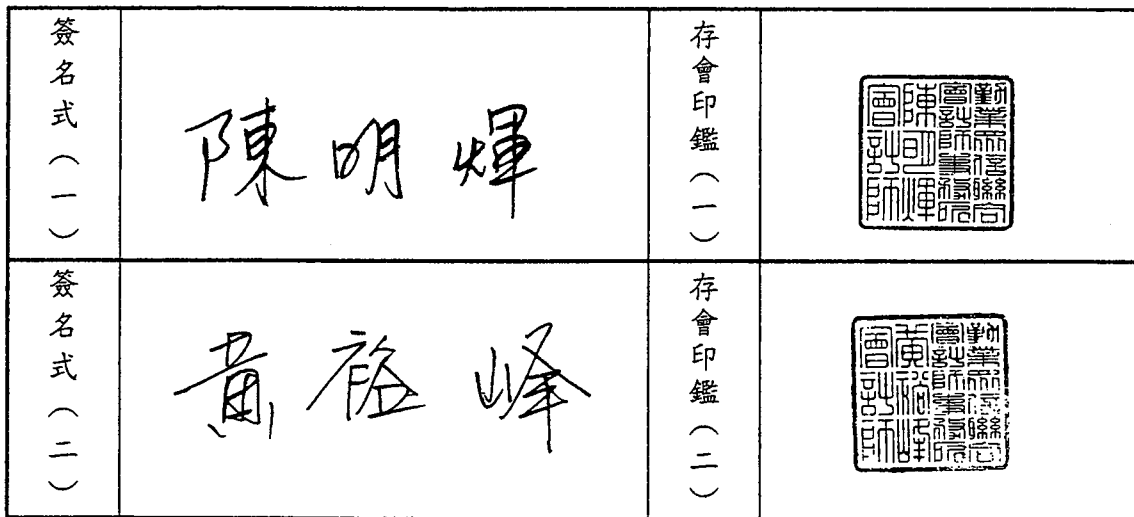 簽名式(一)
陳明煇
存會印鑑(一)
勤業眾信聯合
會計師事務所
陳明煇
會計師
簽名式(二)
黃裕峰
存會印鑑(二)
勤業眾信聯合
會計師事務所
黃裕峰
會計師